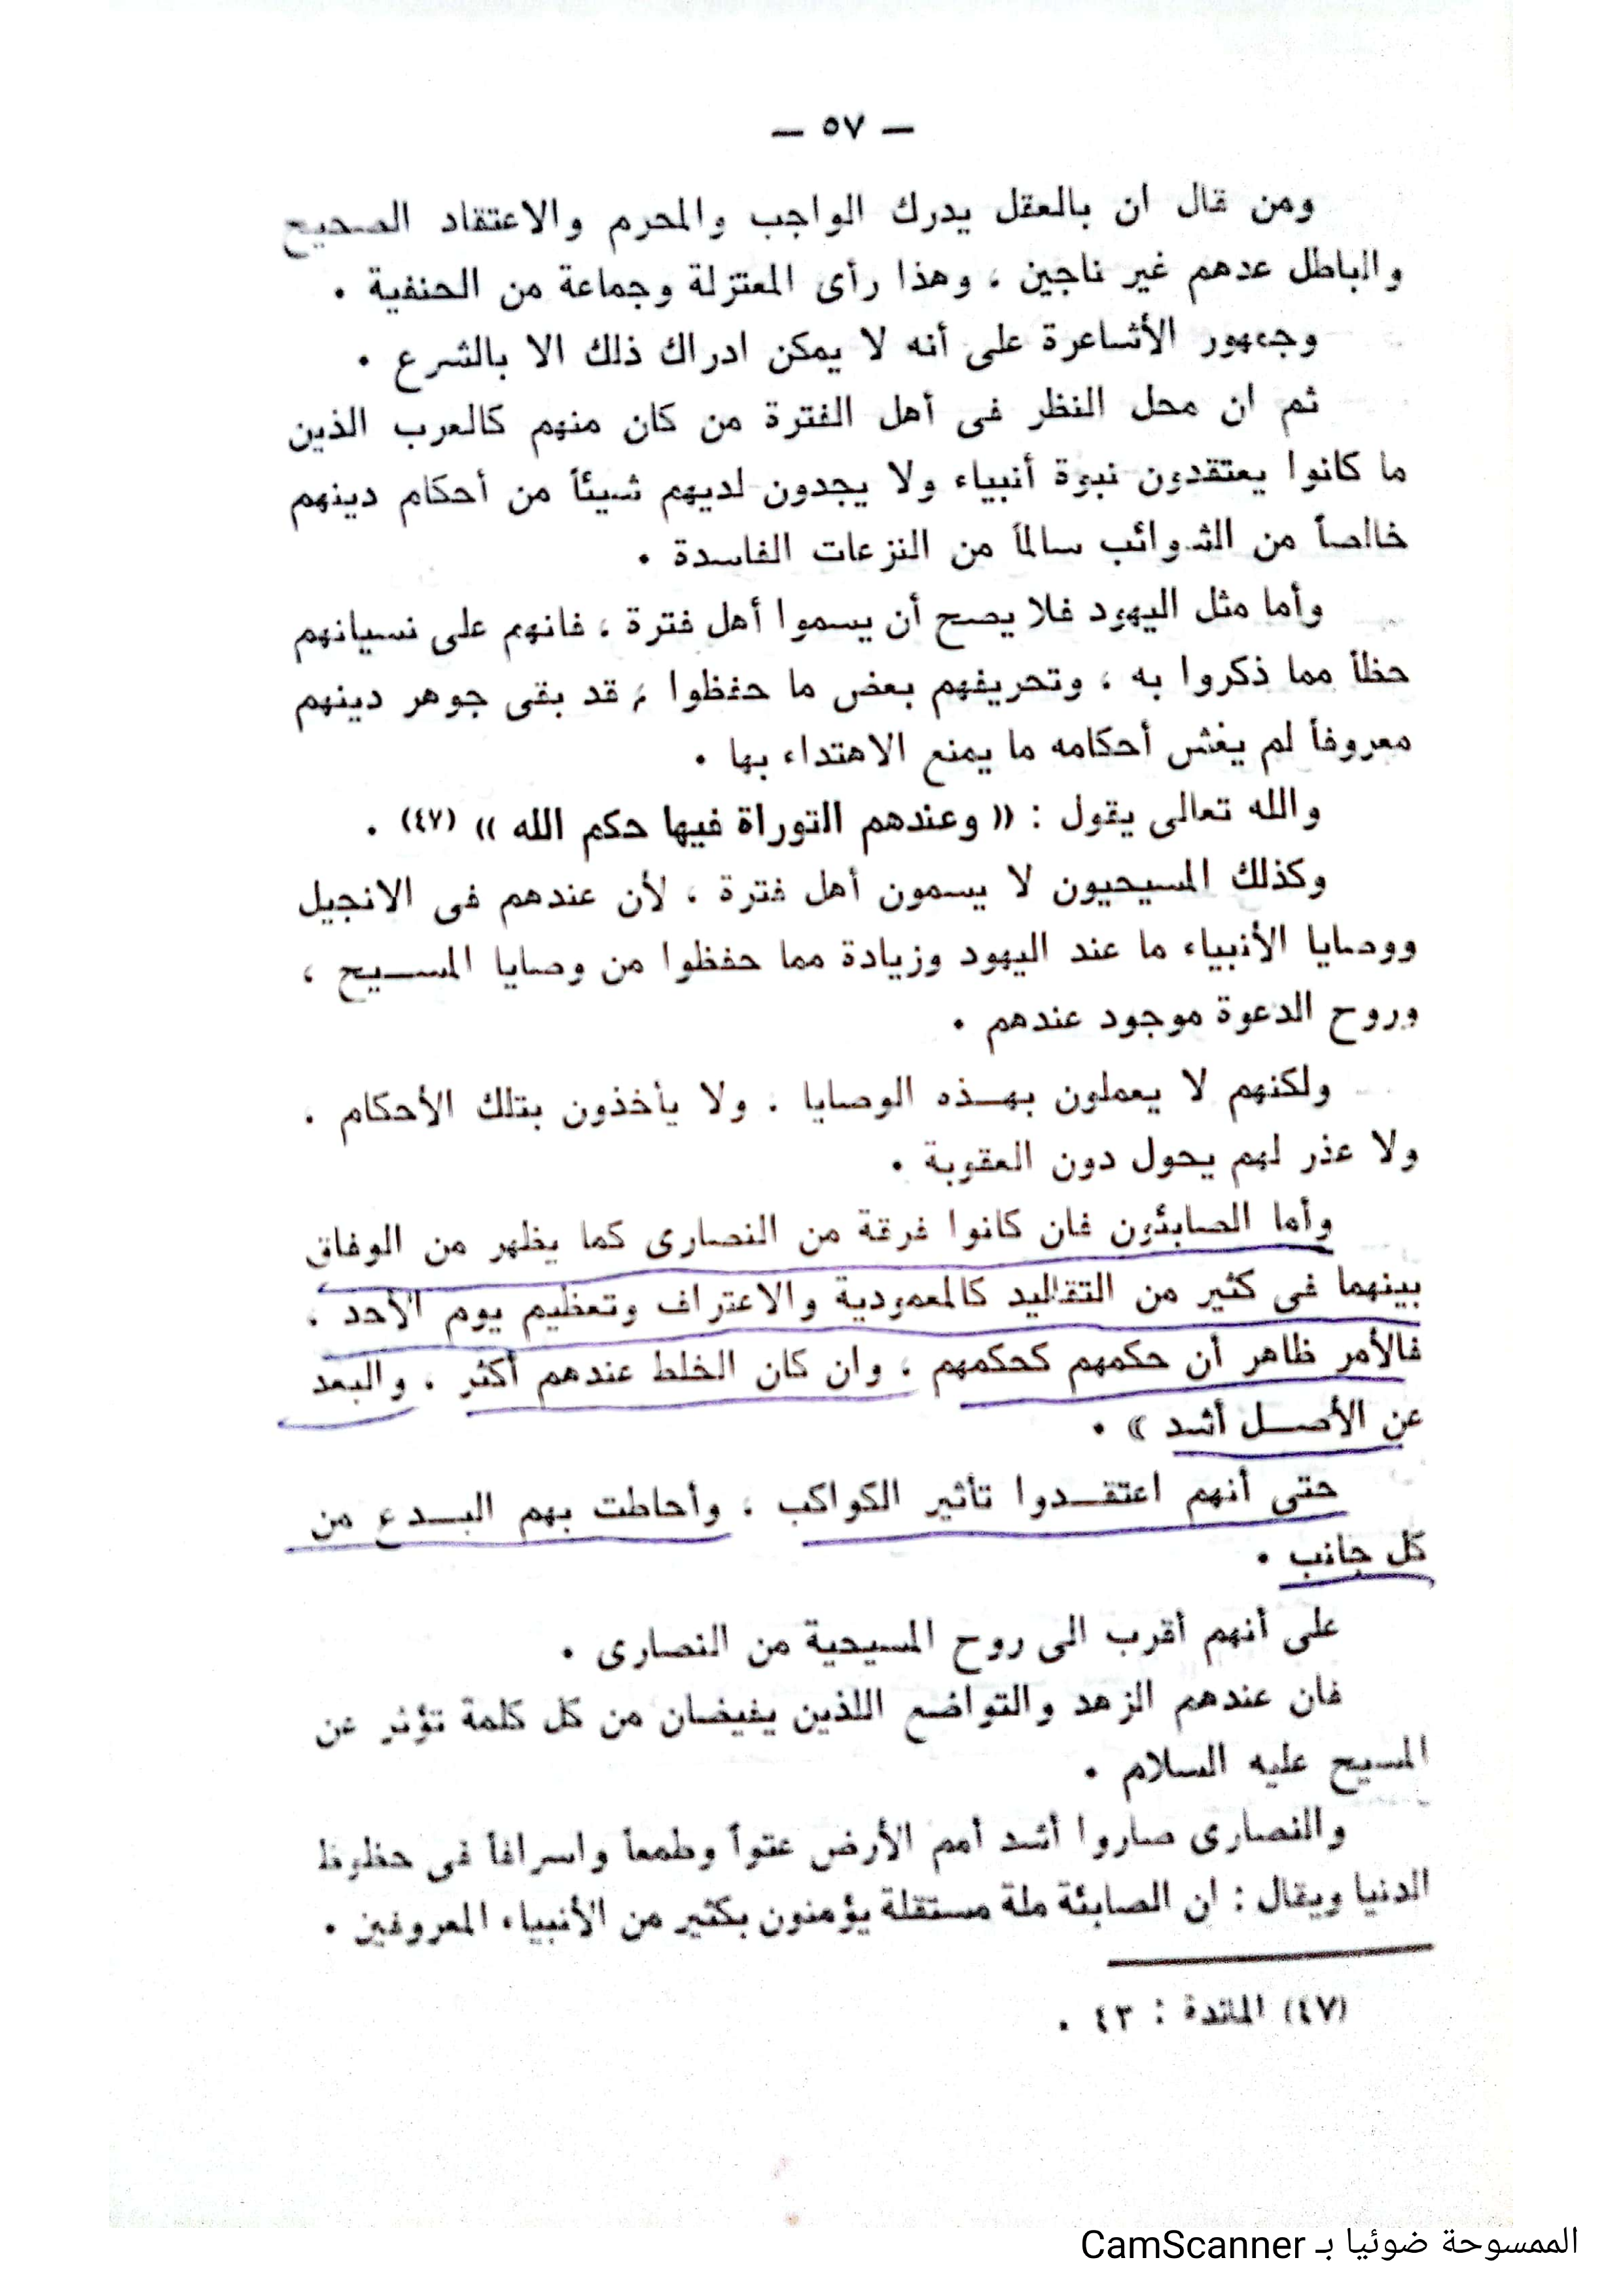 — ٥٧ —
ومن قال ان بالعقل يدرك الواجب والمحرم والاعتقاد الصحيح
والباطل عدهم غير ناجين ، وهذا رأى المعتزلة وجماعة من الحنفية .
وجمهور الأشاعرة على أنه لا يمكن ادراك ذلك الا بالشرع .
ثم ان محل النظر فى أهل الفترة من كان منهم كالعرب الذين
ما كانوا يعتقدون نبوة أنبياء ولا يجدون لديهم شيئاً من أحكام دينهم
خالصاً من الشوائب سالماً من النزعات الفاسدة .
وأما مثل اليهود فلا يصح أن يسموا أهل فترة ، فانهم على نسيانهم
حظاً مما ذكروا به ، وتحريفهم بعض ما حفظوا ، قد بقى جوهر دينهم
معروفاً لم يغش أحكامه ما يمنع الاهتداء بها .
والله تعالى يقول : « وعندهم التوراة فيها حكم الله » (٤٧) .
وكذلك المسيحيون لا يسمون أهل فترة ، لأن عندهم فى الانجيل
ووصايا الأنبياء ما عند اليهود وزيادة مما حفظوا من وصايا المســيح ،
وروح الدعوة موجود عندهم .
ولكنهم لا يعملون بهــذه الوصايا . ولا يأخذون بتلك الأحكام .
ولا عذر لهم يحول دون العقوبة .
وأما الصابئون فان كانوا فرقة من النصارى كما يظهر من الوفاق
بينهما فى كثير من التقاليد كالمعمودية والاعتراف وتعظيم يوم الأحد ،
فالأمر ظاهر أن حكمهم كحكمهم ، وان كان الخلط عندهم أكثر . والبعد
عن الأصــل أشد » .
حتى أنهم اعتقــدوا تأثير الكواكب ، وأحاطت بهم البــدع من
كل جانب .
على أنهم أقرب الى روح المسيحية من النصارى .
فان عندهم الزهد والتواضع اللذين يفيضان من كل كلمة تؤثر عن
المسيح عليه السلام .
والنصارى صاروا أشد أمم الأرض عتواً وطمعاً واسرافاً فى حظوظ
الدنيا ويقال : ان الصابئة ملة مستقلة يؤمنون بكثير من الأنبياء المعروفين .
(٤٧) المائدة : ٤٣ .
الممسوحة ضوئيا بـ CamScanner